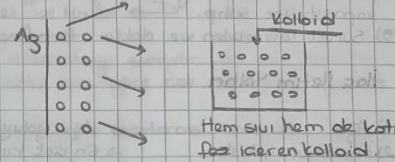 Kolloid
Ag
Hem sıvı hem de katı
faz iceren kolloid.